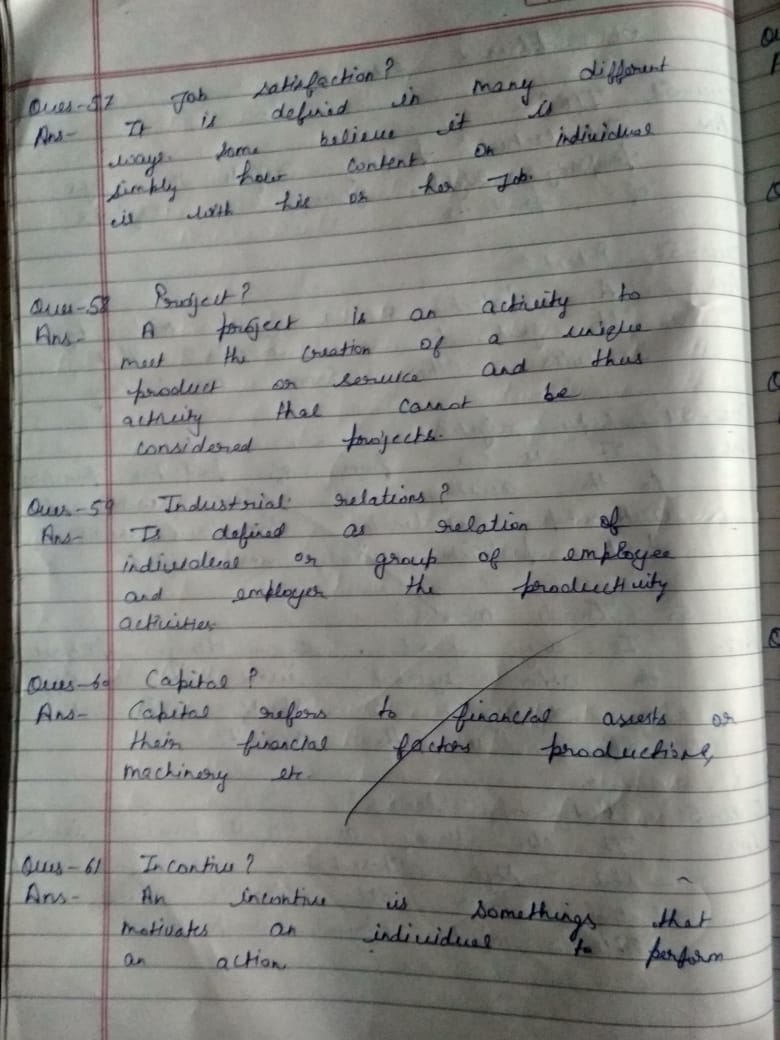 Ques-57 Job satisfaction?
Ans- It is defined in many different
ways. Some believe it is
simply how content on individual
is with his or her Job.
Ques-58 Project?
Ans- A project is an activity to
meet the creation of a unique
product or service and thus
activity that cannot be
considered projects.
Ques-59 Industrial relations?
Ans- Is defined as relation of
individual or group of employee
and employer the productivity
activities
Ques-60 Capital?
Ans- Capital refers to financial assests or
their financial factors productions,
machinery etc.
Ques-61 Incentive?
Ans- An incentive is somethings that
motivates an individual to perform
an action